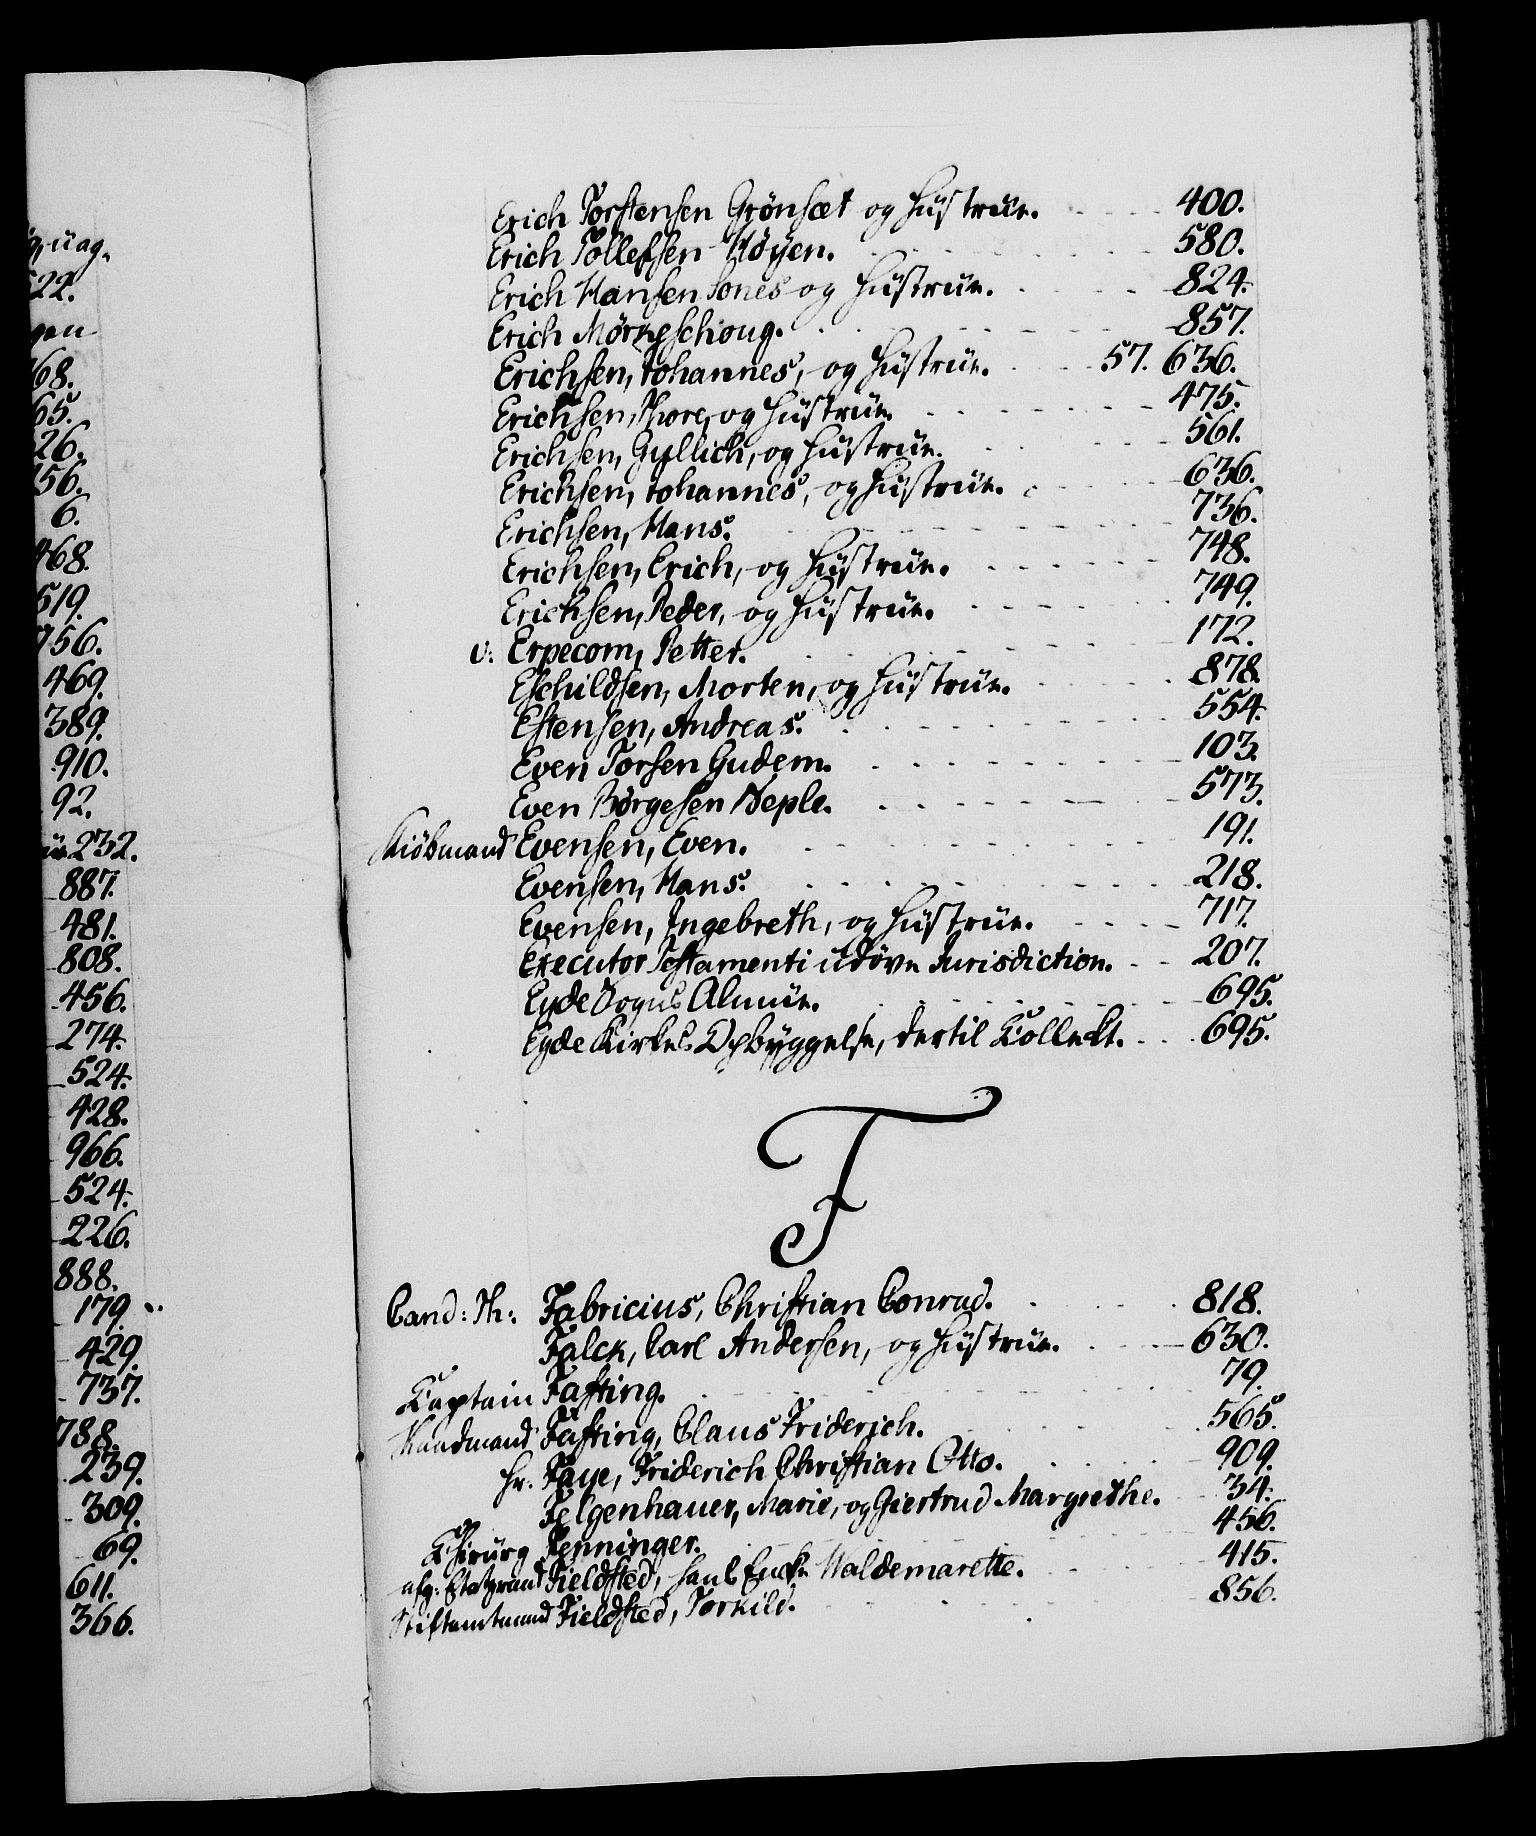 Erich Torstensen Grönsæt og Hustrue. 400.
Erich Tollefsen Höyen. 580.
Erich Hansen Sones og Hustrue. 824.
Erich Mörkeschoug. 857.
Erichsen, Johannes, og Hustrue. 57. 636.
Erichsen, Thore, og Hustrue. 475.
Erichsen, Gullich, og Hustrue. 561.
Erichsen, Johannes, og Hustrue. 636.
Erichsen, Hans. 736.
Erichsen, Erich, og Hustrue. 748.
Erichsen, Peder, og Hustrue. 749.
v: Erpecom, Petter. 172.
Eschildsen, Morten, og Hustrue. 878.
Estensen, Andreas. 554.
Even Torsen Gudem. 103.
Even Börgesen Neple. 573.
Kiöbmand Evensen, Even. 191.
Evensen, Hans. 218.
Evensen, Ingebreth, og Hustrue. 717.
Executor Testamenti udöve Jurisdiction. 207.
Eyde Sogns Almue. 695.
Eyde Kirkes Opbyggelse, dertil Collekt. 695.
F
Cand: Th: Fabricius, Christian Conrad. 818.
Falck, Carl Andersen, og Hustrue. 630.
Captain Fasting. 79.
Kandmand Fasting, Claus Friderich. 565.
Hr. Faye, Friderich Christian Otto. 909.
Felgenhauer, Marie, og Giertrud Margrethe. 34.
Chirurg Fenninger. 456.
afg: Etatzraad Fieldsted, hans Enke Waldemarette. 415.
Stiftamtmand Fieldsted, Torkild. 856.
22.
68.
65.
26.
56.
6.
468.
519.
756.
469.
389.
910.
92.
232.
887.
481.
808.
456.
274.
524.
428.
966.
524.
226.
888.
179.
429.
737.
788.
239.
309.
69.
611.
366.